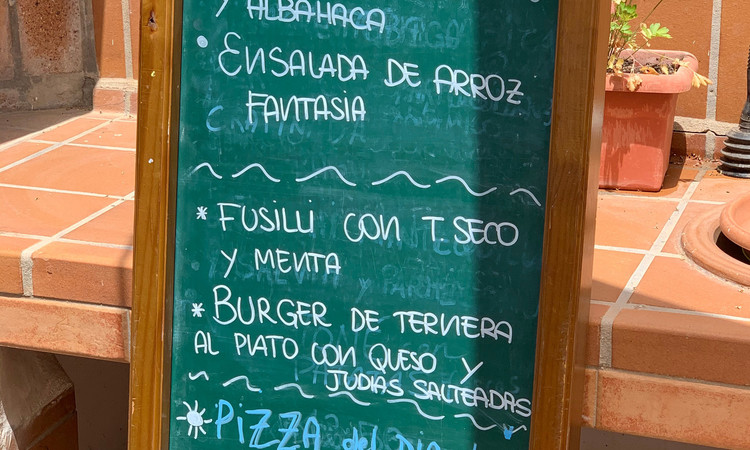 Y ALBAHACA
• ENSALADA DE ARROZ
FANTASIA
* FUSILLI CON T. SECO
Y MENTA
* BURGER DE TERNERA
AL PLATO CON QUESO Y
JUDIAS SALTEADAS
PIZZA del DIA